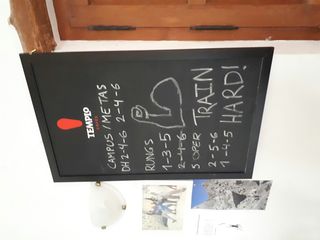 TEMPLO
CAMPUS/METAS
DH 2-4-6 2-4-6
RUNGS
1-3-5
2-4-6
SUPER TRAIN
2-5-6 HARD!
1-4-5